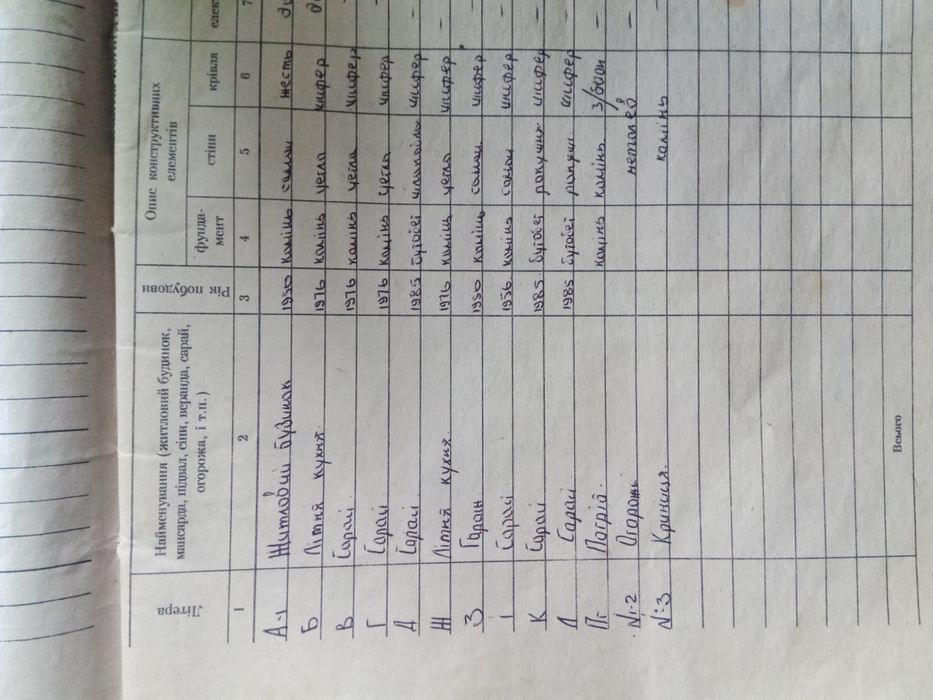 Літера | Найменування (житловий будинок, мансарда, підвал, сіни, веранда, сарай, огорожа, і т.п.) | Рік побудови | Опис конструктивних елементів
фунда-мент | стіни | крівля | елек
1 | 2 | 3 | 4 | 5 | 6 | 7
А-1 | Житловий будинок | 1950 | камінь | саман | жесть
Б | Літня кухня | 1976 | камінь | цегла | шифер
В | Сарай | 1976 | камінь | цегла | шифер
Г | Сарай | 1976 | камінь | цегла | шифер | –
Д | Сарай | 1985 | бутовий | шлакоблок | шифер | –
Ж | Літня кухня | 1976 | камінь | цегла | шифер | –
З | Гараж | 1950 | камінь | саман | шифер | –
І | Сарай | 1956 | камінь | саман | шифер | –
К | Сарай | 1985 | бутовий | ракушняк | шифер | –
Л | Сарай | 1985 | бутовий | шифер | –
Пг | Погріб | камінь | камінь | з/бетон | –
№2 | Огорожі | –
№3 | Криниця | камінь
Всього